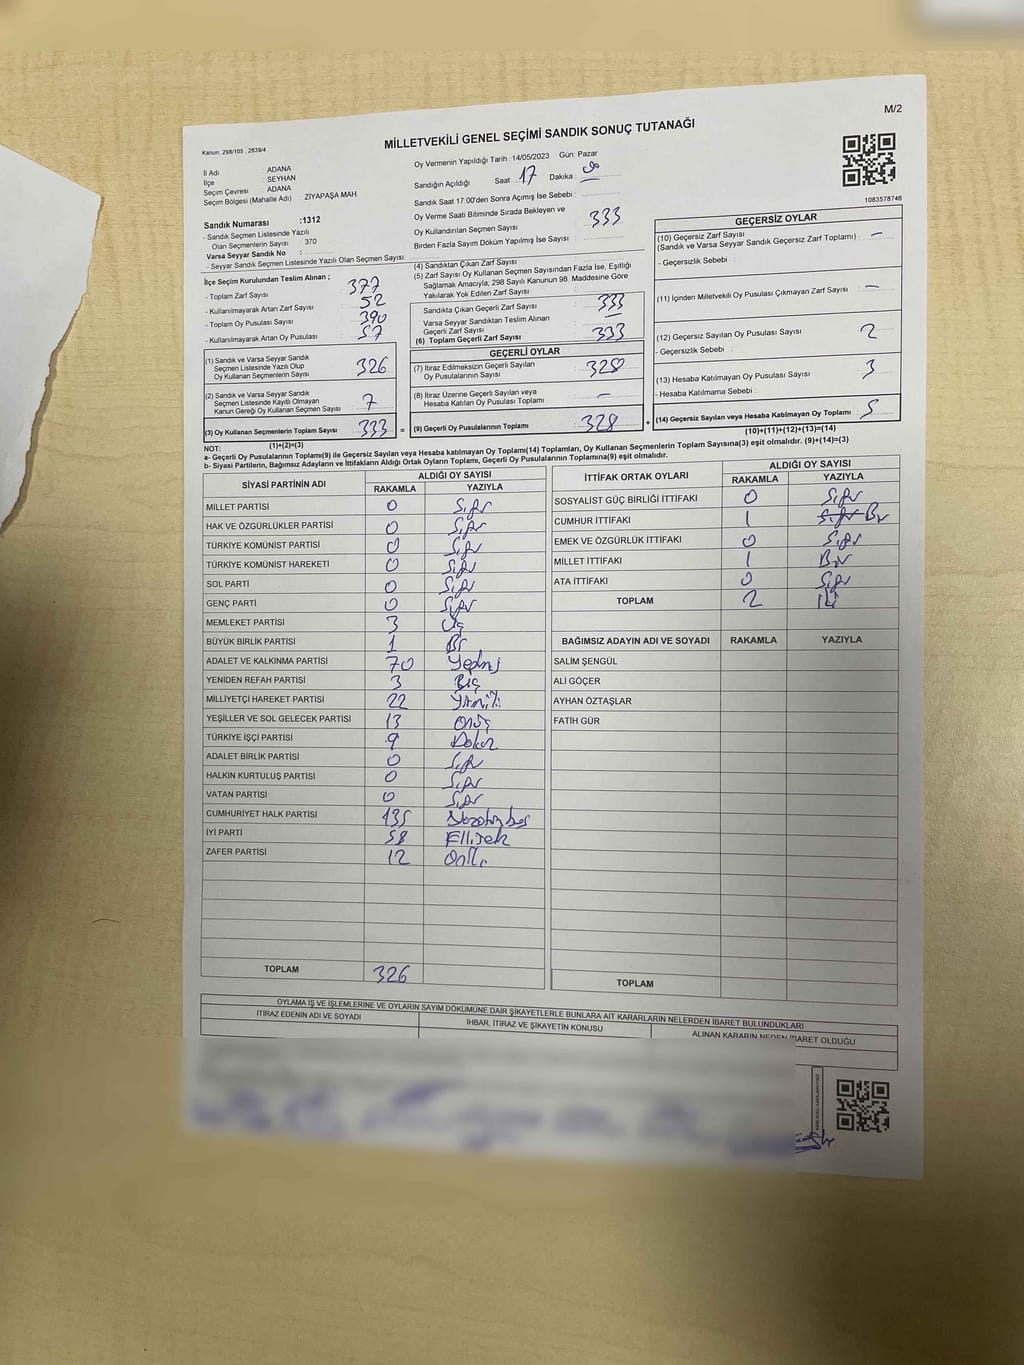 M/2
Kanun, 298/105 , 2839/4
MİLLETVEKİLİ GENEL SEÇİMİ SANDIK SONUÇ TUTANAĞI
İl Adı ADANA
İlçe SEYHAN
Seçim Çevresi ADANA
Seçim Bölgesi (Mahalle Adı) : ZİYAPAŞA MAH
Sandık Numarası :1312
- Sandık Seçmen Listesinde Yazılı
Olan Seçmenlerin Sayısı : 370
Varsa Seyyar Sandık No :
- Seyyar Sandık Seçmen Listesinde Yazılı Olan Seçmen Sayısı:
Oy Vermenin Yapıldığı Tarih :14/05/2023 Gün: Pazar
Sandığın Açıldığı Saat : 17 Dakika :
Sandık Saat 17.00'den Sonra Açımış İse Sebebi :
Oy Verme Saati Bitiminde Sırada Bekleyen ve
Oy Kullandırılan Seçmen Sayısı : 333
Birden Fazla Sayım Döküm Yapılmış İse Sayısı :
1083578746
İlçe Seçim Kurulundan Teslim Alınan ;
- Toplam Zarf Sayısı : 377
- Kullanılmayarak Artan Zarf Sayısı : 52
- Toplam Oy Pusulası Sayısı : 390
- Kullanılmayarak Artan Oy Pusulası : 57
(1) Sandık ve Varsa Seyyar Sandık
Seçmen Listesinde Yazılı Olup
Oy Kullanan Seçmenlerin Sayısı : 326
(2) Sandık ve Varsa Seyyar Sandık
Seçmen Listesinde Kayıtlı Olmayan
Kanun Gereği Oy Kullanan Seçmen Sayısı : 7
(3) Oy Kullanan Seçmenlerin Toplam Sayısı : 333 =
(1)+(2)=(3)
(4) Sandıktan Çıkan Zarf Sayısı
(5) Zarf Sayısı Oy Kullanan Seçmen Sayısından Fazla İse, Eşitliği
Sağlamak Amacıyla, 298 Sayılı Kanunun 98. Maddesine Göre
Yakılarak Yok Edilen Zarf Sayısı
Sandıkta Çıkan Geçerli Zarf Sayısı : 333
Varsa Seyyar Sandıktan Teslim Alınan
Geçerli Zarf Sayısı : —
(6) Toplam Geçerli Zarf Sayısı : 333
GEÇERLİ OYLAR
(7) İtiraz Edilmeksizin Geçerli Sayılan
Oy Pusulalarının Sayısı : 328
(8) İtiraz Üzerine Geçerli Sayılan veya
Hesaba Katılan Oy Pusulası Toplamı : —
(9) Geçerli Oy Pusulalarının Toplamı : 328 +
GEÇERSİZ OYLAR
(10) Geçersiz Zarf Sayısı
(Sandık ve Varsa Seyyar Sandık Geçersiz Zarf Toplamı) : —
- Geçersizlik Sebebi :
(11) İçinden Milletvekili Oy Pusulası Çıkmayan Zarf Sayısı : —
(12) Geçersiz Sayılan Oy Pusulası Sayısı : 2
- Geçersizlik Sebebi :
(13) Hesaba Katılmayan Oy Pusulası Sayısı : 3
- Hesaba Katılmama Sebebi :
(14) Geçersiz Sayılan veya Hesaba Katılmayan Oy Toplamı : 5
(10)+(11)+(12)+(13)=(14)
NOT:
a- Geçerli Oy Pusulası Toplamı(9) ile Geçersiz Sayılan veya Hesaba Katılmayan Oy Toplamı(14) Toplamları, Oy Kullanan Seçmenlerin Toplam Sayısına(3) eşit olmalıdır. (9)+(14)=(3)
b- Siyasi Partilerin, Bağımsız Adayların ve İttifakların Aldığı Ortak Oyların Toplamı, Geçerli Oy Pusulalarının Toplamına(9) eşit olmalıdır.
SİYASİ PARTİNİN ADI ALDIĞI OY SAYISI
RAKAMLA YAZIYLA
MİLLET PARTİSİ 0 Sıfır
HAK VE ÖZGÜRLÜKLER PARTİSİ 0 Sıfır
TÜRKİYE KOMÜNİST PARTİSİ 0 Sıfır
TÜRKİYE KOMÜNİST HAREKETİ 0 Sıfır
SOL PARTİ 0 Sıfır
GENÇ PARTİ 0 Sıfır
MEMLEKET PARTİSİ 3 Üç
BÜYÜK BİRLİK PARTİSİ 1 Bir
ADALET VE KALKINMA PARTİSİ 70 Yetmiş
YENİDEN REFAH PARTİSİ 3
MİLLİYETÇİ HAREKET PARTİSİ 22 Yirmiiki
YEŞİLLER VE SOL GELECEK PARTİSİ 13 Onüç
TÜRKİYE İŞÇİ PARTİSİ 9 Dokuz
ADALET BİRLİK PARTİSİ 0 Sıfır
HALKIN KURTULUŞ PARTİSİ 0 Sıfır
VATAN PARTİSİ 0 Sıfır
CUMHURİYET HALK PARTİSİ 135 Yüzotuzbeş
İYİ PARTİ 58 Ellisek
ZAFER PARTİSİ 12 Oniki
TOPLAM 326
İTTİFAK ORTAK OYLARI ALDIĞI OY SAYISI
RAKAMLA YAZIYLA
SOSYALİST GÜÇ BİRLİĞİ İTTİFAKI 0 Sıfır
CUMHUR İTTİFAKI 1 Sıfır Bir
EMEK VE ÖZGÜRLÜK İTTİFAKI 0 Sıfır
MİLLET İTTİFAKI 1 Bir
ATA İTTİFAKI 0 Sıfır
TOPLAM 2 İki
BAĞIMSIZ ADAYIN ADI VE SOYADI RAKAMLA YAZIYLA
SALİM ŞENGÜL
ALİ GÖÇER
AYHAN ÖZTAŞLAR
FATİH GÜR
TOPLAM
OYLAMA İŞ VE İŞLEMLERİNE VE OYLARIN SAYIM DÖKÜMÜNE DAİR ŞİKAYETLERLE BUNLARA AİT KARARLARIN NELERDEN İBARET BULUNDUKLARI
İTİRAZ EDENİN ADI VE SOYADI İHBAR, İTİRAZ VE ŞİKAYETİN KONUSU ALINAN KARARIN NEDEN İBARET OLDUĞU